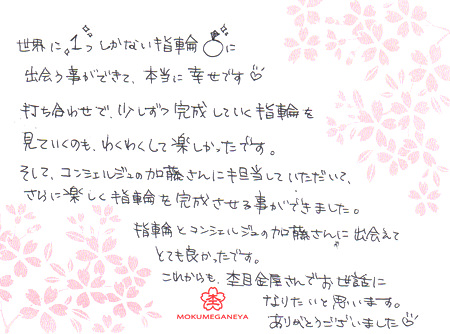 世界に1つしかない指輪に
出会う事ができて、本当に幸せです♡
打ち合わせで、少しずつ完成していく指輪を
見ていくのも、わくわくして楽しかったです。
そして、コンシェルジュの加藤さんに担当していただいて、
さらに楽しく指輪を完成させる事ができました。
指輪とコンシェルジュの加藤さんに出会えて
とても良かったです。
これからも、杢目金屋さんでお世話に
なりたいと思います。
ありがとうございました♡
MOKUMEGANEYA